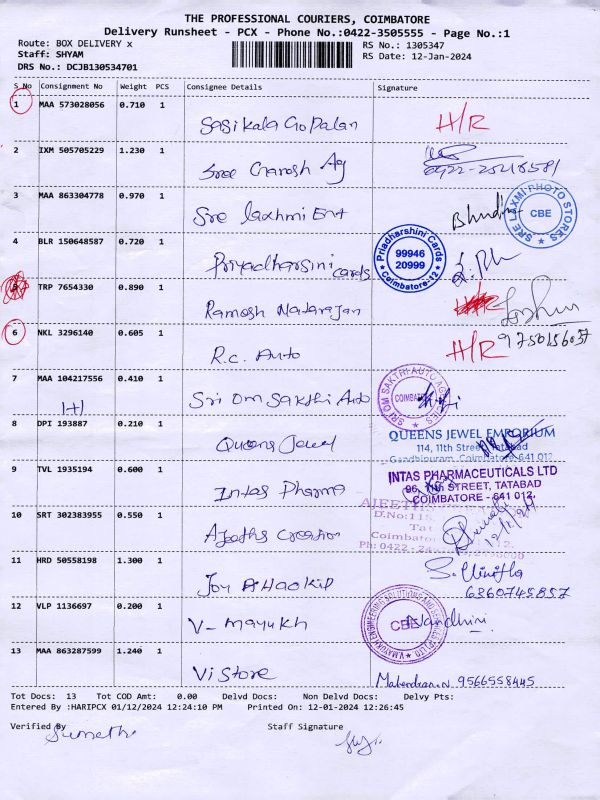 THE PROFESSIONAL COURIERS, COIMBATORE
Delivery Runsheet - PCX - Phone No.:0422-3505555 - Page No.:1
Route: BOX DELIVERY x
RS No.: 1305347
Staff: SHYAM
RS Date: 12-Jan-2024
DRS No.: DCJB130534701
S No Consignment No Weight PCS Consignee Details Signature
1 MAA 573028056 0.710 1
Sasikala Gopalan H/R
2 IXM 505705229 1.230 1
Sree Ganesh Ag
3 MAA 863304778 0.970 1
Sre laxhmi Ent
SRE LAXMI PHOTO STORES
CBE
4 BLR 150648587 0.720 1
Priyadharsini cards
Priadharshini Cards
99946
20999
Coimbatore-12
5 TRP 7654330 0.890 1
Ramesh Natarajan
6 NKL 3296140 0.605 1
9750156037
R.C. Auto H/R
7 MAA 104217556 0.410 1
1+1
Sri Om Sakthi Auto
SRI OM SAKTHI AUTO AGENCIES
COIMBATORE
8 DPI 193887 0.210 1
Queens Jewel
QUEENS JEWEL EMPORIUM
114, 11th Street, Tatabad
Gandhipuram, Coimbatore-641 012
9 TVL 1935194 0.600 1
Intas Pharma
INTAS PHARMACEUTICALS LTD
96, 11th STREET, TATABAD
COIMBATORE - 641 012.
10 SRT 302383955 0.550 1
Ajeeths Creation
12/1/24
11 HRD 50558198 1.300 1
Joy A Haokip
6360745857
12 VLP 1136697 0.200 1
V- mayukh
CBE
Nandhini
13 MAA 863287599 1.240 1
Vi Store
Mahendran.N 9566558445
Tot Docs: 13 Tot COD Amt: 0.00 Delvd Docs: Non Delvd Docs: Delvy Pts:
Entered By :HARIPCX 01/12/2024 12:24:10 PM Printed On: 12-01-2024 12:26:45
Verified By Staff Signature